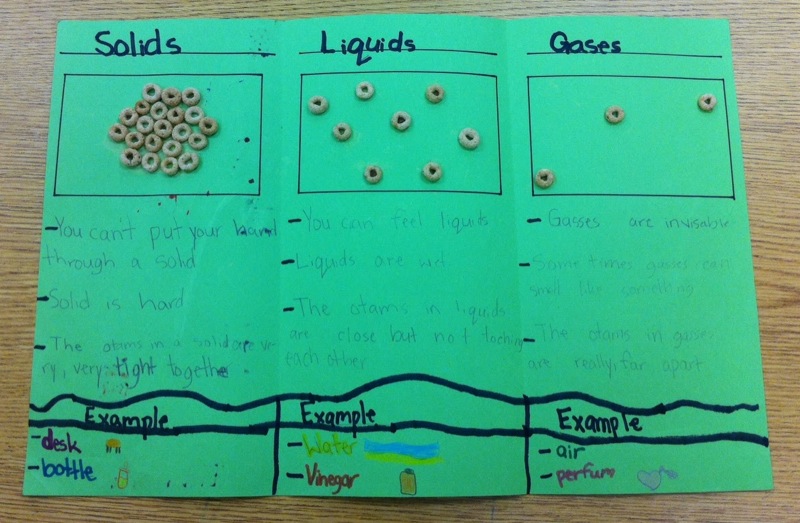 Solids
-You can't put your hand
through a solid
-Solid is hard
-The otams in a solid are ve
ry, very tight together.
Example
-desk
-bottle
Liquids
-You can feel liquits
-Liquids are wet
-The otams in liquids
are close but not toching
each other
Example
-Water
-Vinegar
Gases
-Gasses are invisable
-Sometimes gasses can
smell like something
-The otams in gases
are really, far apart
Example
-air
-perfum